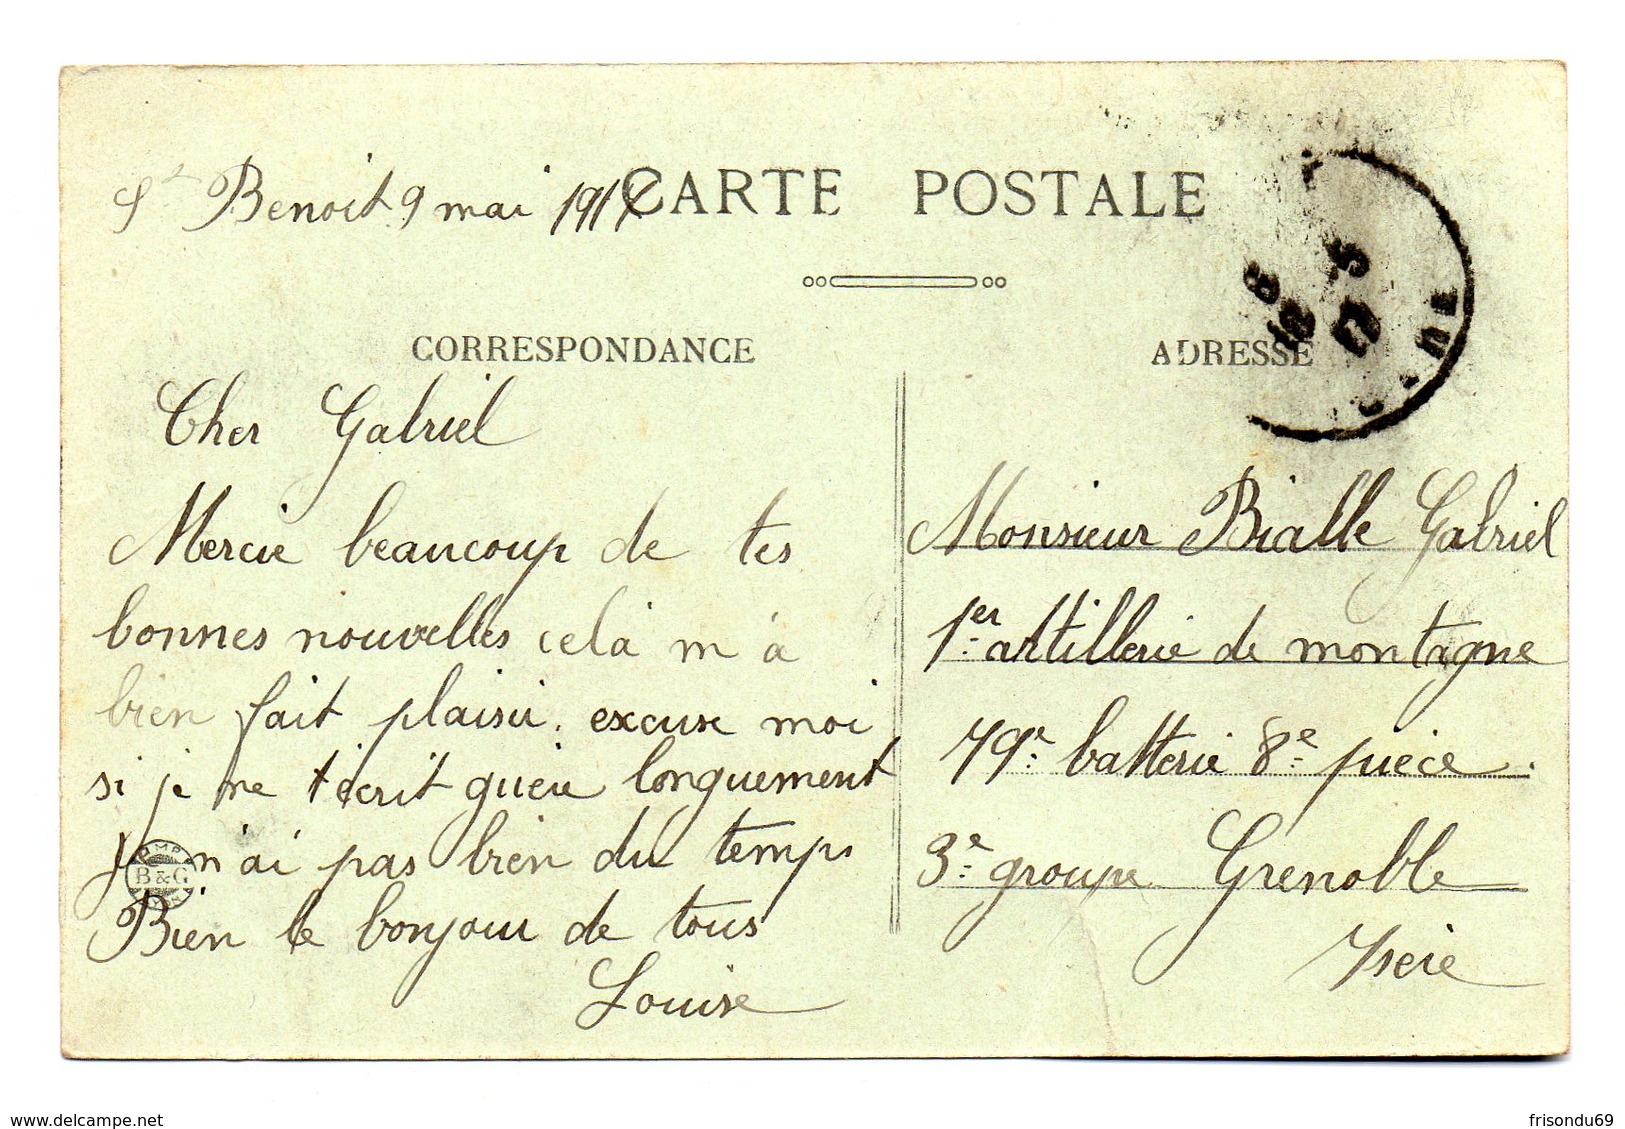 St Benoit 9 mai 1917
CARTE POSTALE
CORRESPONDANCE
Cher Gabriel
Mercie beaucoup de tes
bonnes nouvelles cela m'à
bien fait plaisir. excuse moi
si je ne t'écrit guère longuement
je n'ai pas bien du temps
Bien le bonjour de tous
Louise
B & G
ADRESSE
Monsieur Bialle Gabriel
1er artillerie de montagne
79e batterie 8e pièce.
3e groupe Grenoble
Isère
delcampe.net
frisondu69